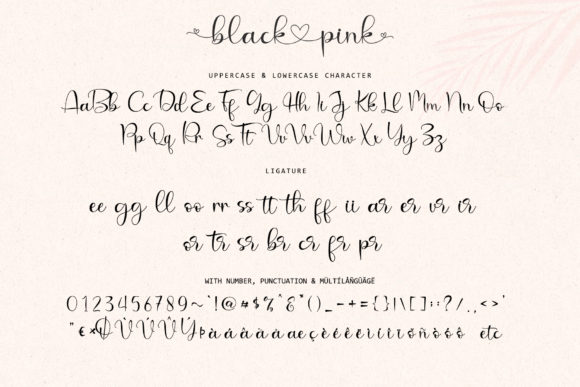 black pink
UPPERCASE & LOWERCASE CHARACTER
Aa Bb Cc Dd Ee Ff Gg Hh Ii Jj Kk Ll Mm Nn Oo
Pp Qq Rr Ss Tt Uu Vv Ww Xx Yy Zz
LIGATURE
ee gg ll oo rr ss tt th ff ii ar er vr ir
or tr sr br cr fr pr
WITH NUMBER, PUNCTUATION & MÜLTÍLÂÑGÛÃGË
0123456789~`!@#$%^&*()_-+={}|\[]:;?/.,<>'
etc